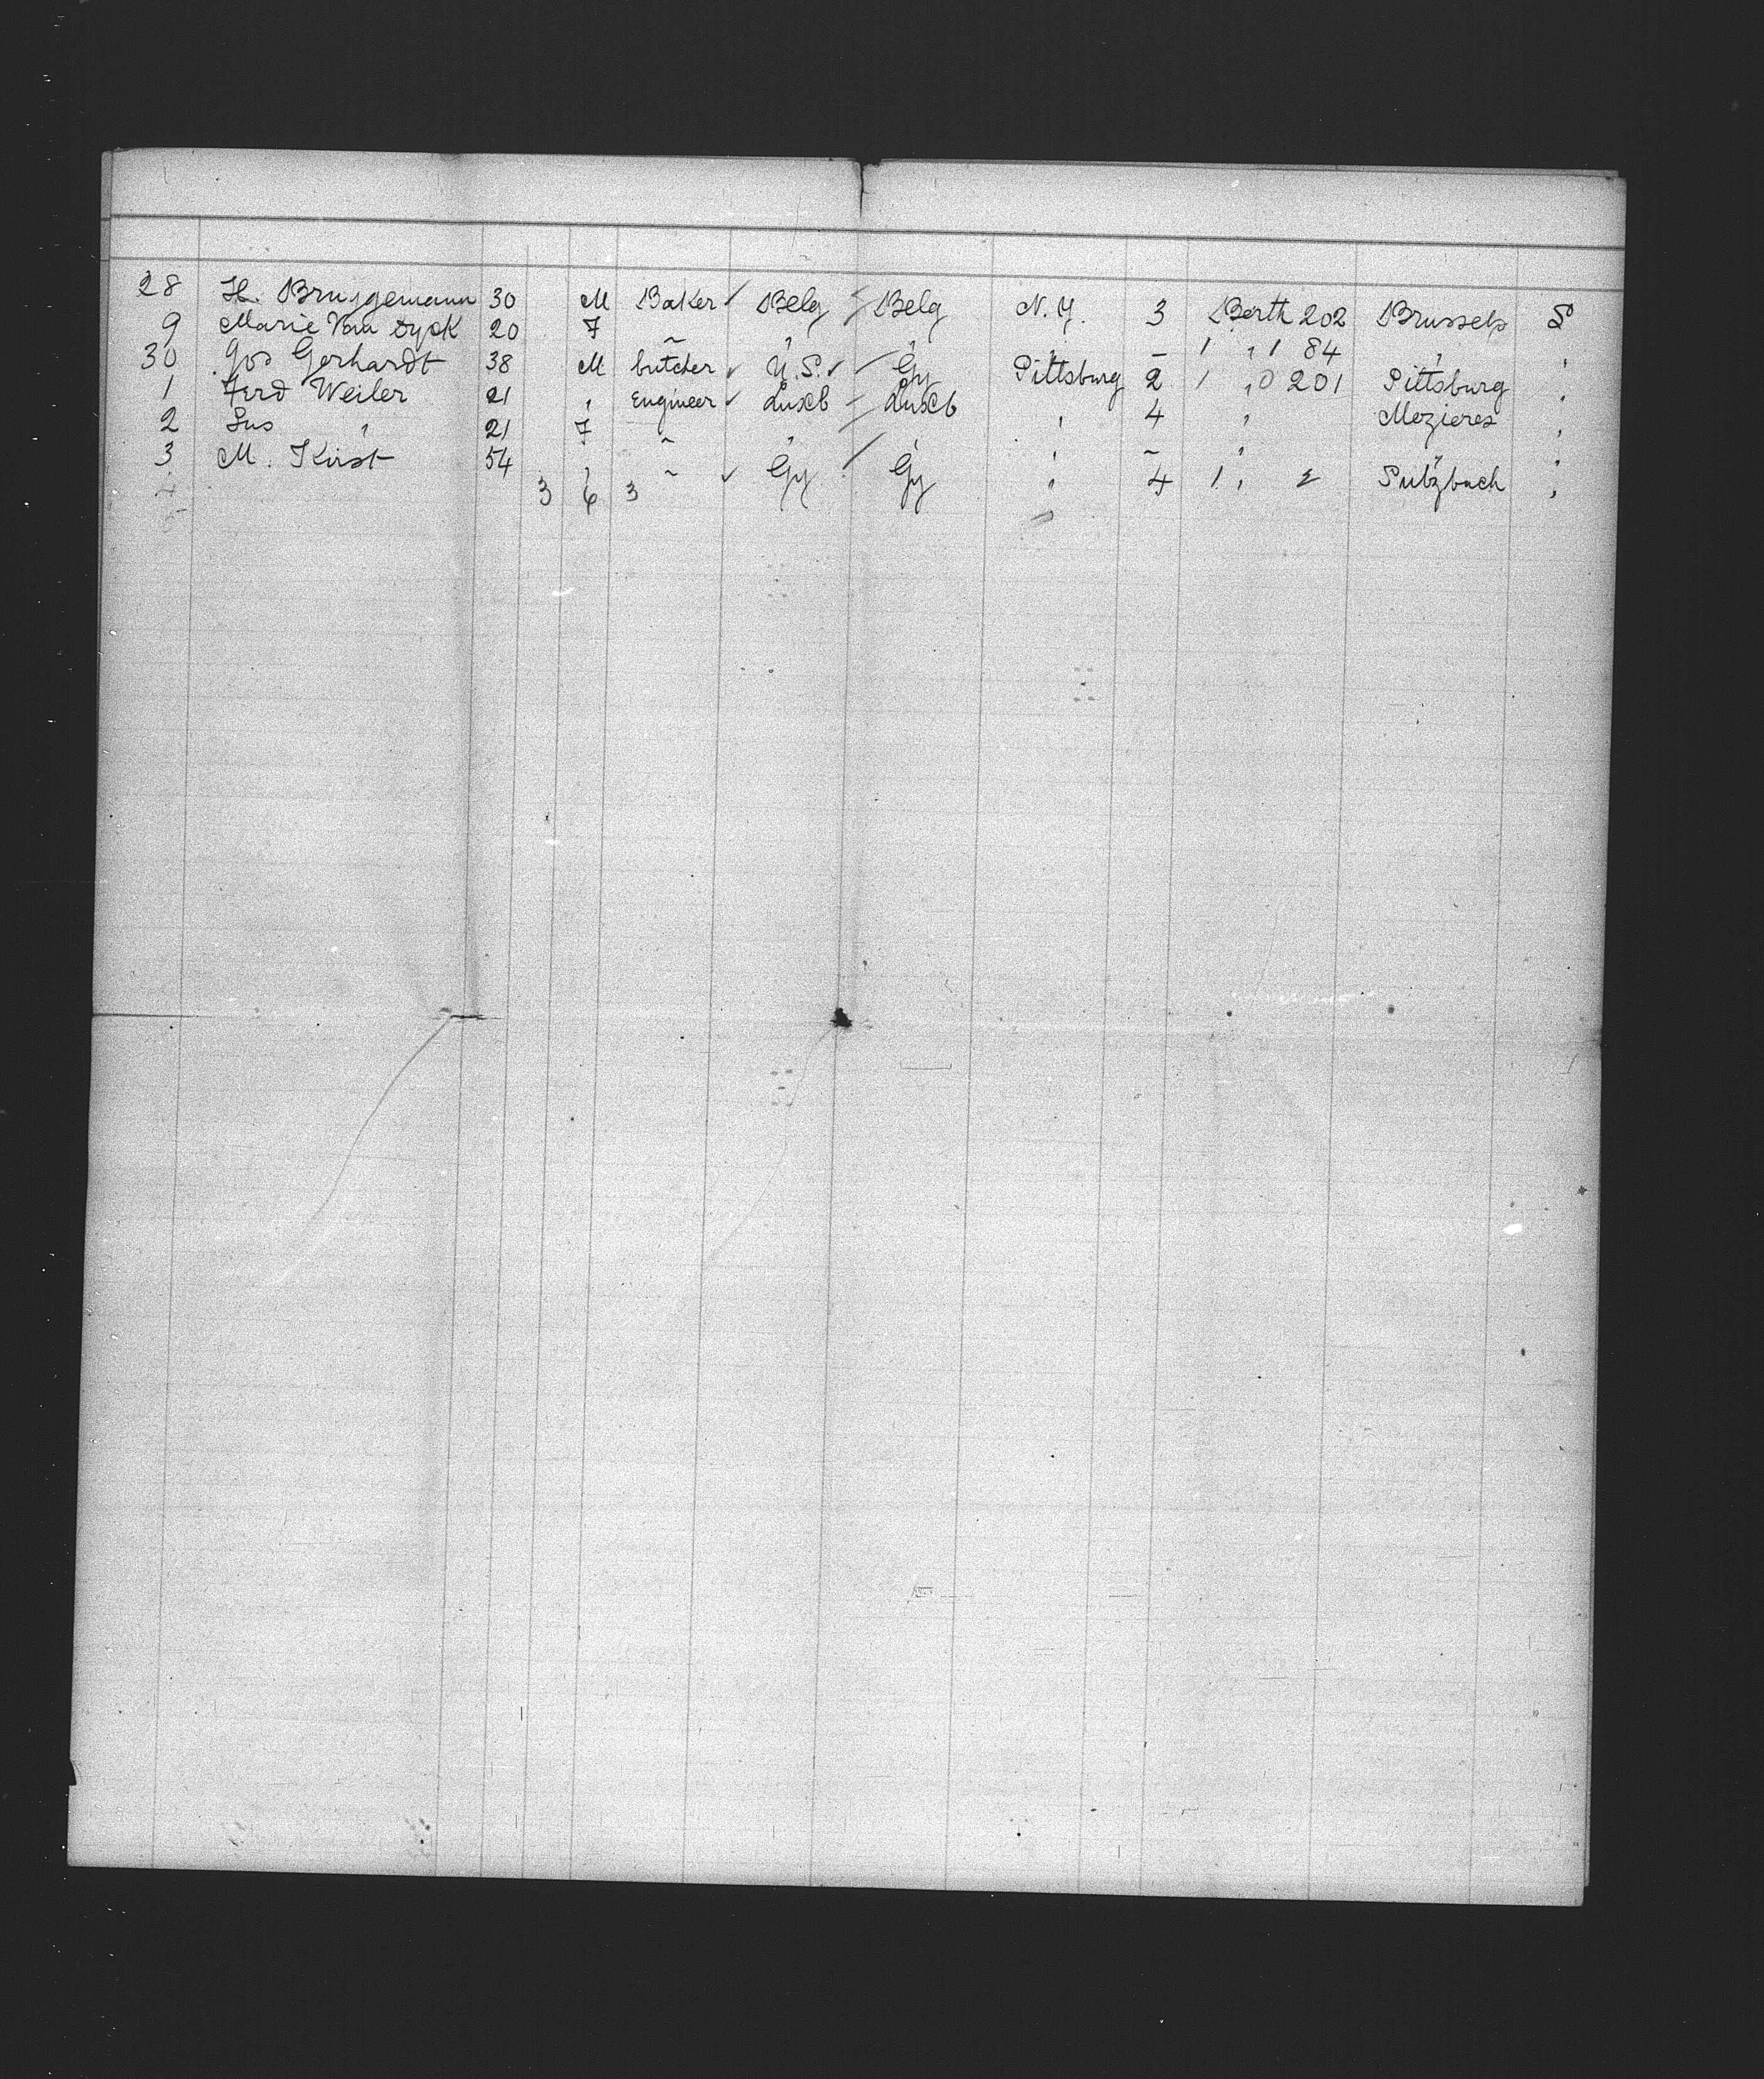 28 H. Bruggemann 30 M Baker ✓ Belg Belg N.Y. 3 Berth 202 Brussels S
9 Marie Van Dyck 20 F ~ " " " – 1 " 1 84 " "
30 Jos Gerhardt 38 M butcher ✓ U.S. ✓ / Gy Pittsburg 2 1 " 0 201 Pittsburg "
1 Ferd Weiler 21 " Engineer ✓ Luxb Luxb " 4 " Mezieres "
2 Sus " 21 F ~ " " – " " "
3 M. Kirst 54 " ~ ✓ Gy / Gy " 4 1 " 2 Sulzbach "
4 3 6 3
5